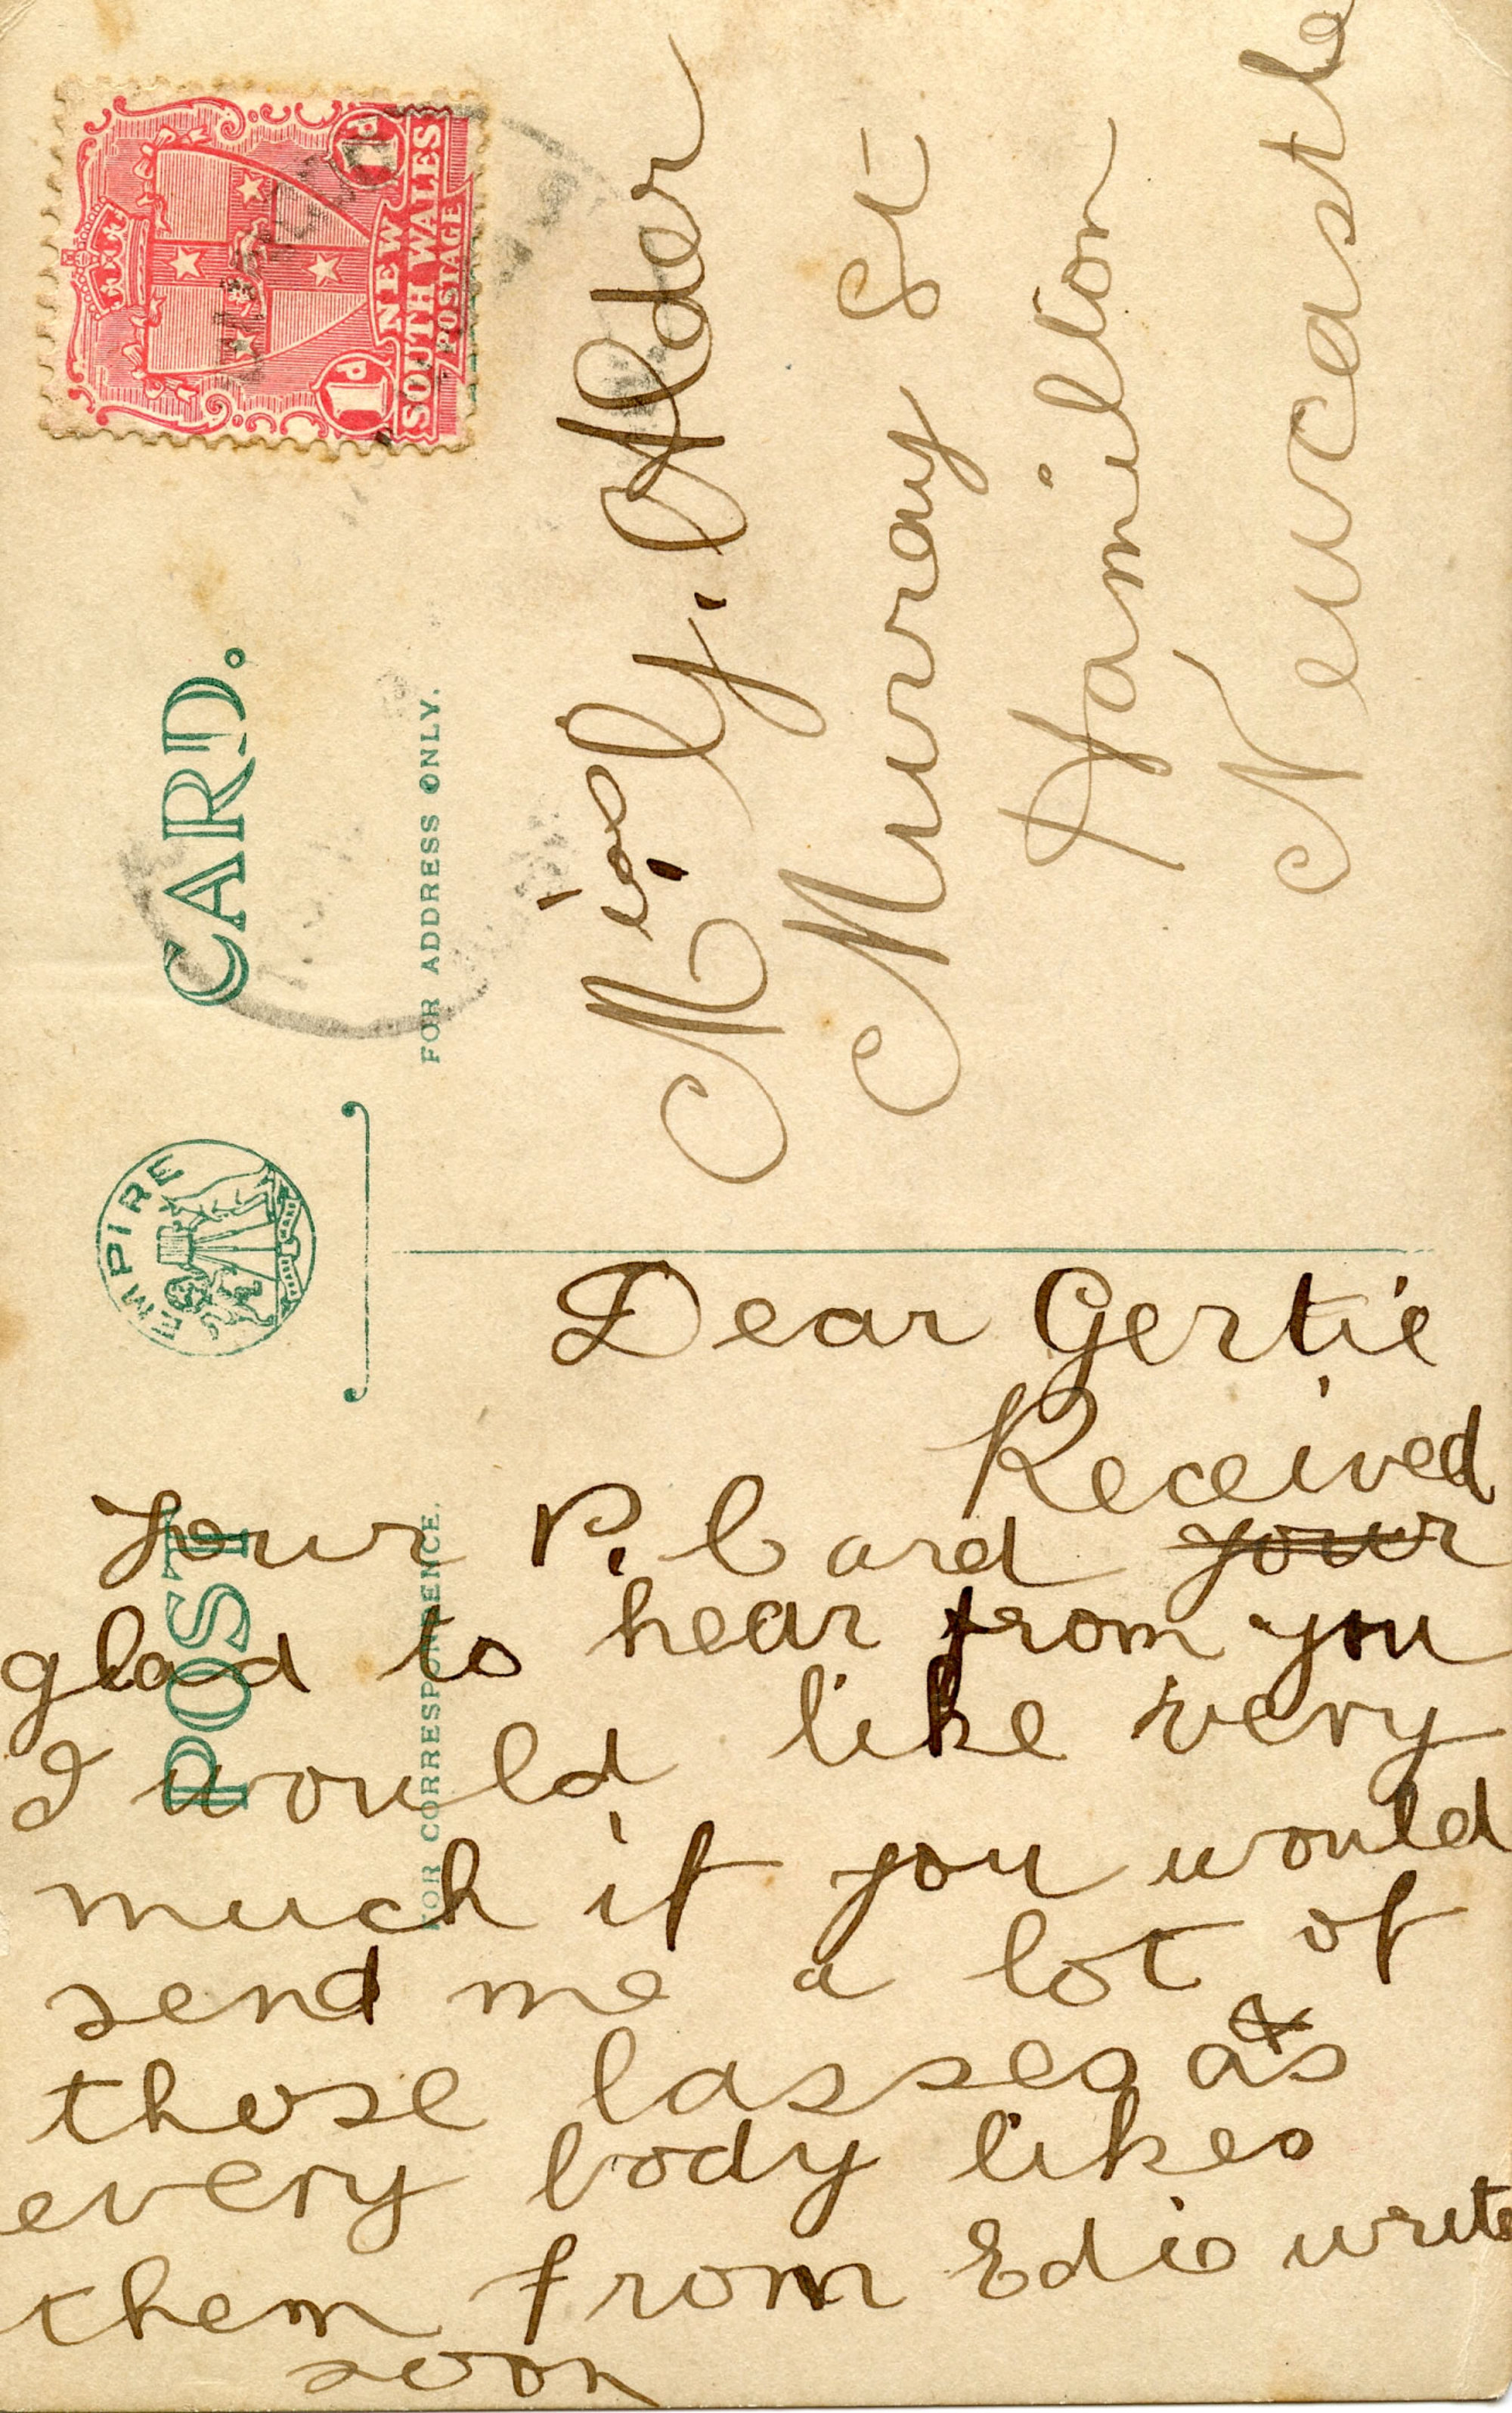 POST CARD.
EMPIRE
FOR CORRESPONDENCE.
FOR ADDRESS ONLY.
1D 1D
NEW
SOUTH WALES
POSTAGE
Miss G. Alder
Murray St
Hamilton
Newcastle
Dear Gertie
Received
your P. Card your
glad to hear from you
I would like very
much if you would
send me a lot of
those lasses as
every body likes
them from Edie write
soon